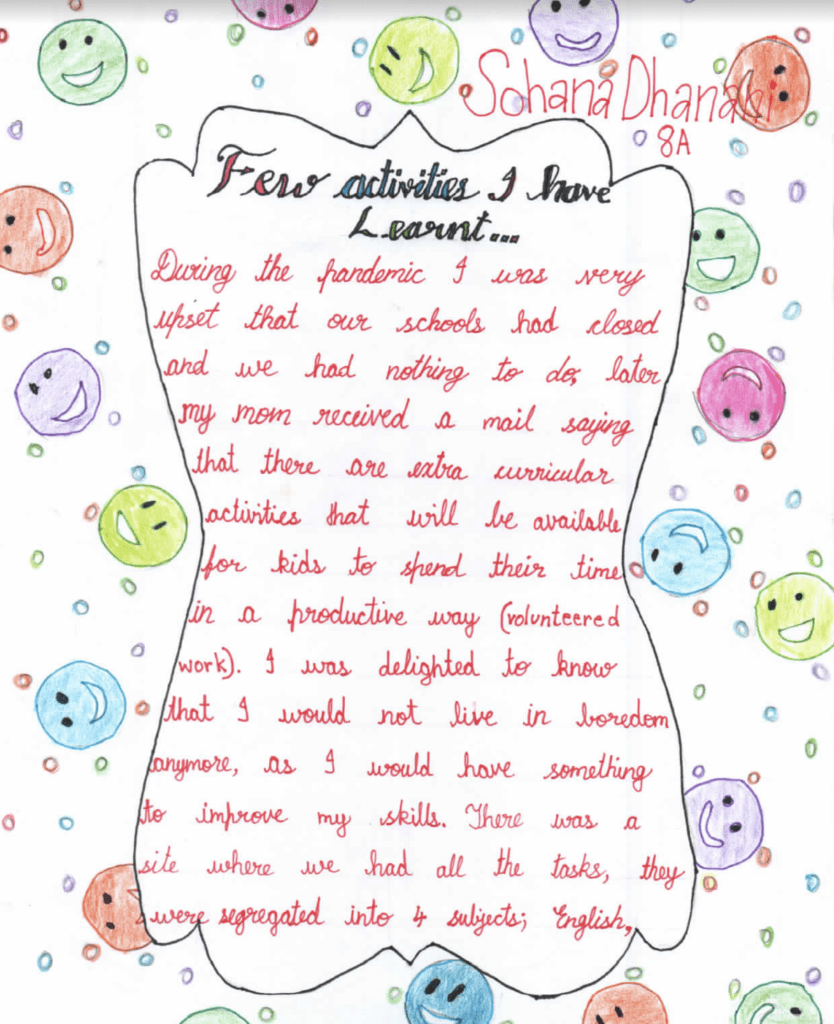 Sohana Dhanani
8A
Few activities I have
Learnt...
During the pandemic I was very
upset that our schools had closed
and we had nothing to do, later
my mom received a mail saying
that there are extra curricular
activities that will be available
for kids to spend their time
in a productive way (volunteered
work). I was delighted to know
that I would not live in boredem
anymore, as I would have something
to improve my skills. There was a
site where we had all the tasks, they
were segregated into 4 subjects; English,